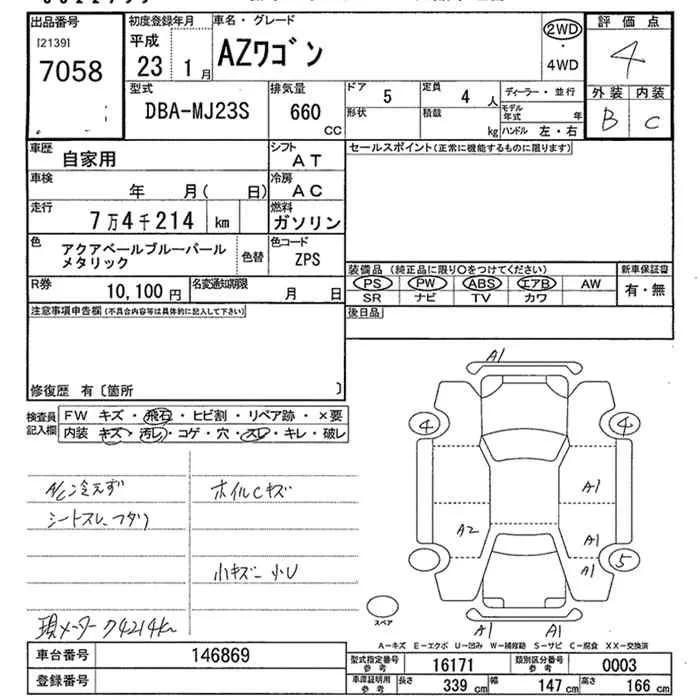 出品番号
[2139]
7058
初度登録年月
平成
23 1月
車名・グレード
AZワゴン
2WD
・
4WD
評価点
4
外装 内装
B C
型式
DBA-MJ23S
排気量
660
CC
ドア
5
定員
4 人
形状
積載
kg
ディーラー・並行
モデル年式 年
ハンドル 左・右
車歴
自家用
シフト
AT
車検
年 月( 日)
冷房
AC
走行
7万4千214 km
燃料
ガソリン
色
アクアベールブルーパール
メタリック
色替
色コード
ZPS
R券
10,100 円
名変通知期限
月 日
セールスポイント(正常に機能するものに限ります)
装備品 (純正品に限り〇をつけてください)
PS PW ABS エアB AW
SR ナビ TV カワ
新車保証書
有・無
後日品
注意事項申告欄(不具合内容等は具体的に記入して下さい)
修復歴 有〔箇所 〕
検査員
記入欄
FW キズ・飛石・ヒビ割・リペア跡・×要
内装 キズ・汚レ・コゲ・穴・スレ・キレ・破レ
A/C冷えず
シートスレ、フタリ
ホイルCキズ
小キズ 小U
現メーター74214km
A1
4
4
A1
A2
A1
A1
5
A1
A1
スペア
A-キズ E-エクボ U-凹み W-補修跡 S-サビ C-腐食 XX-交換済
車台番号
146869
登録番号
型式指定番号
参考
16171
類別区分番号
参考
0003
車庫証明用
参考
長さ
339 cm
幅
147 cm
高さ
166 cm